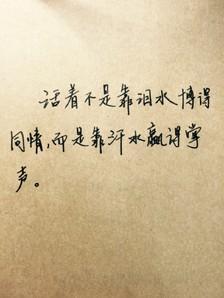 活着不是靠泪水博得
同情,而是靠汗水赢得掌
声。